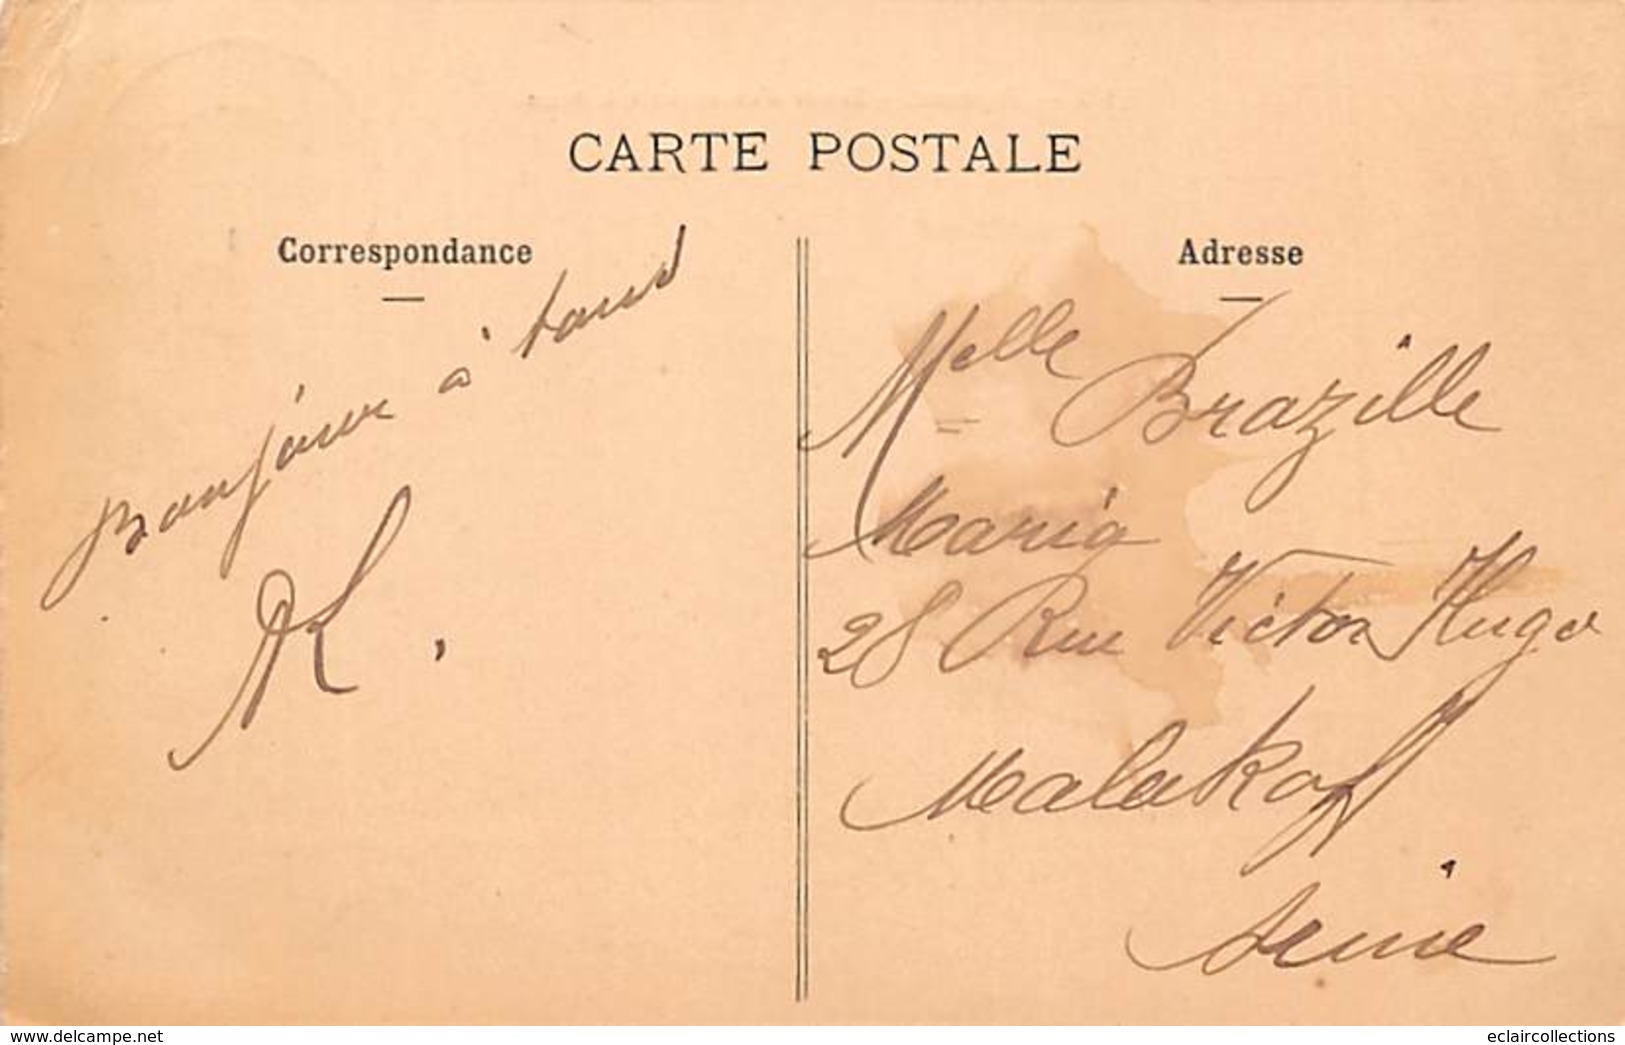 CARTE POSTALE
Correspondance
Bonjour à tous
Adresse
Melle Brazille
Maria
28 Rue Victor Hugo
Malakoff
Seine
www.delcampe.net
eclaircollections